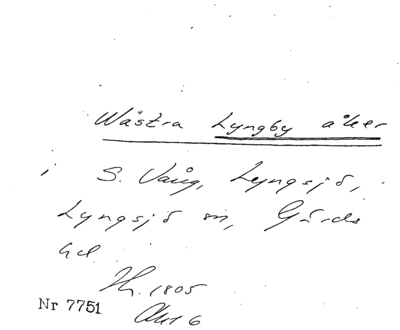 Wästra Lyngby åker
i S. Vång, Lyngsjö,
Lyngsjö sn, Gärds
hd
Hr. 1805
Akt 6
Nr 7751